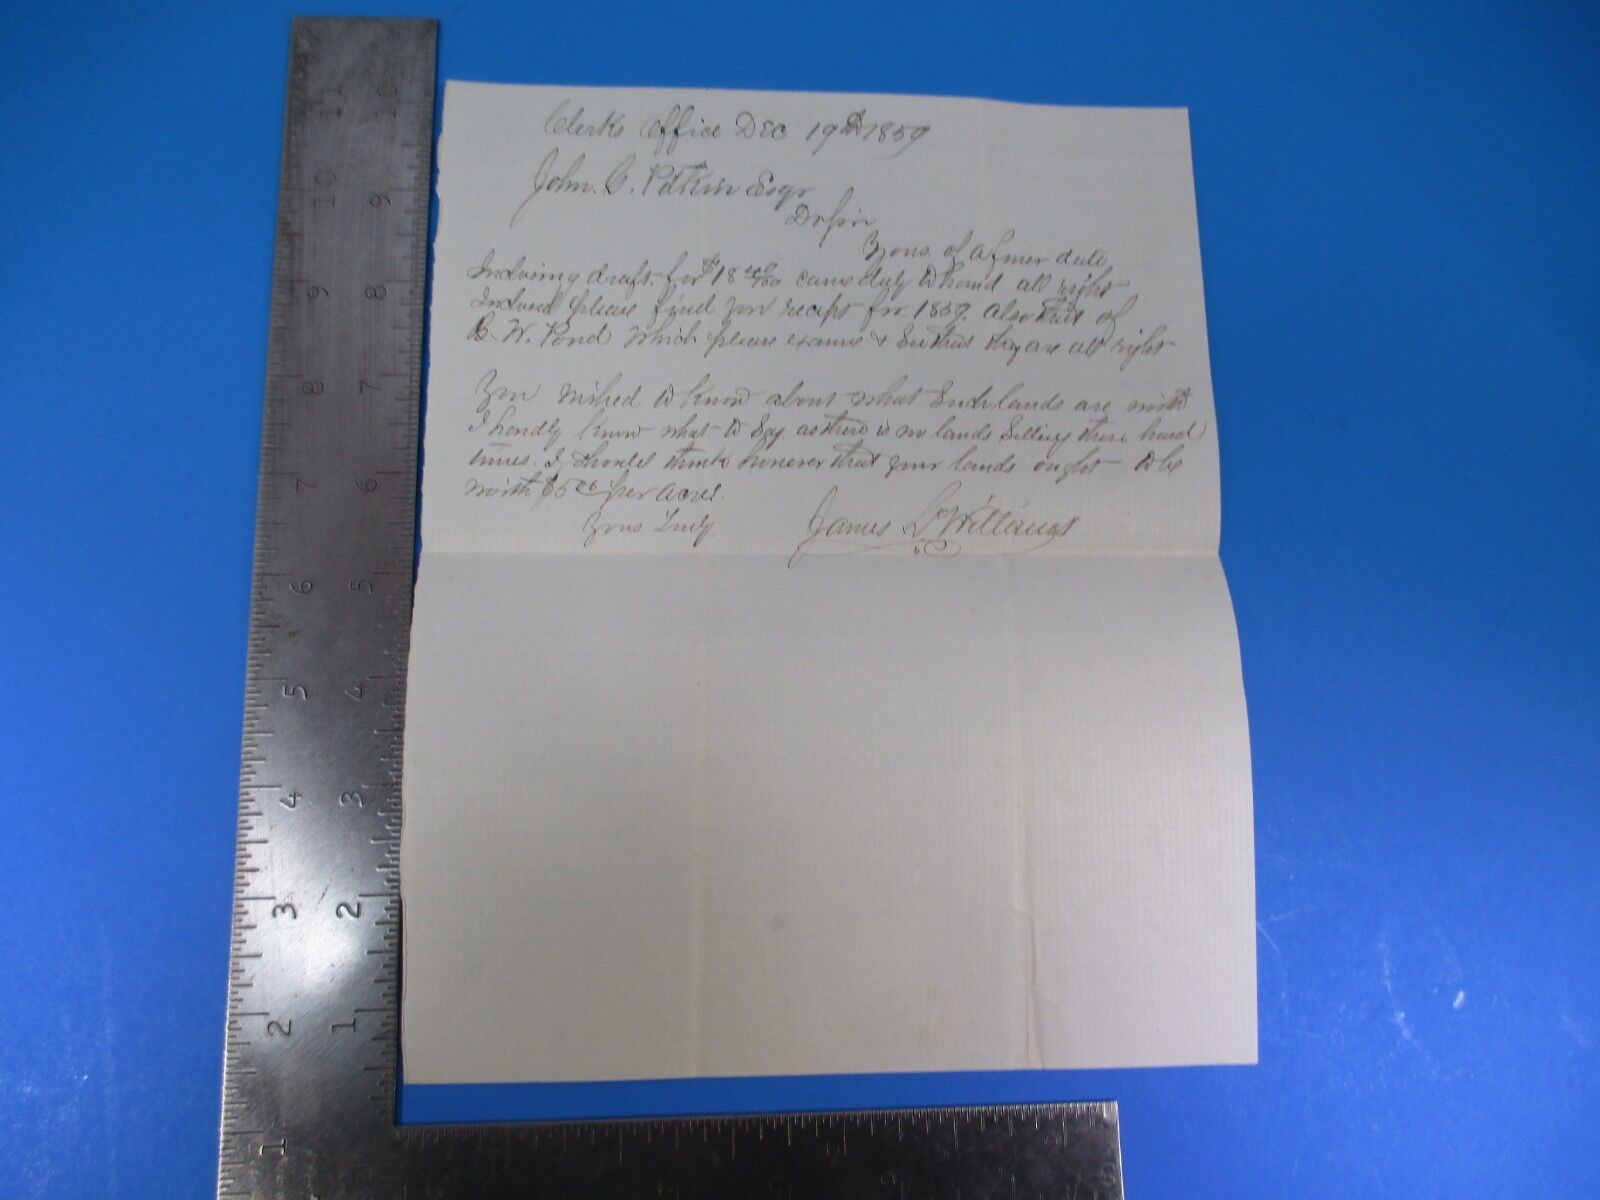 Clerks Office Dec 19th 1859
John. C. Pitkin Esqr
Dr Sir
Yours of a former date
Inclosing draft. for $18 40/100 came duly to hand all right
Inclosed please find your recept for 1859. also that of
B. W. Pond which please examine & See that they are all right
You wished to know about what Such lands are worth
I hardly know what to Say. as there is no lands Selling these hard
times. I Should think however that your lands ought to be
worth $5 00 per acre.
Yours Truly
James L Williams
11
10
9
8
7
6
5
4
3
2
1
10
9
8
7
6
5
4
3
2
1